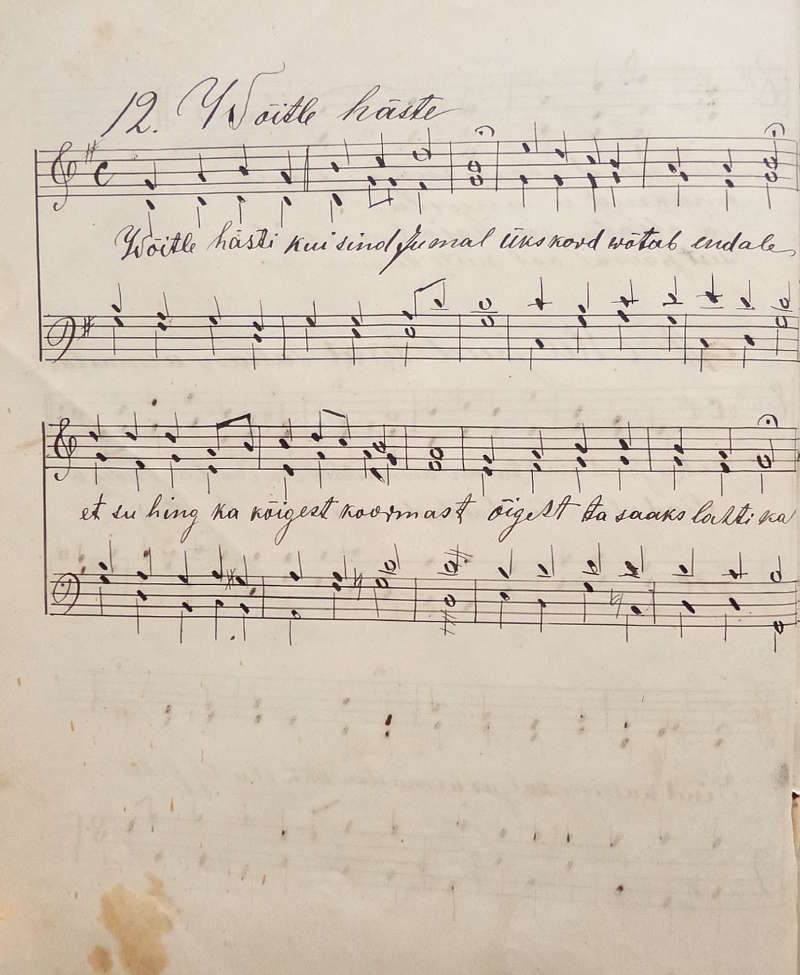 12. Wõitle häste
Wõitle hästi kui sind Jumal üks kord wõtab endale,
et su hing ka kõigest koormast, õigest ta saaks lahti ka